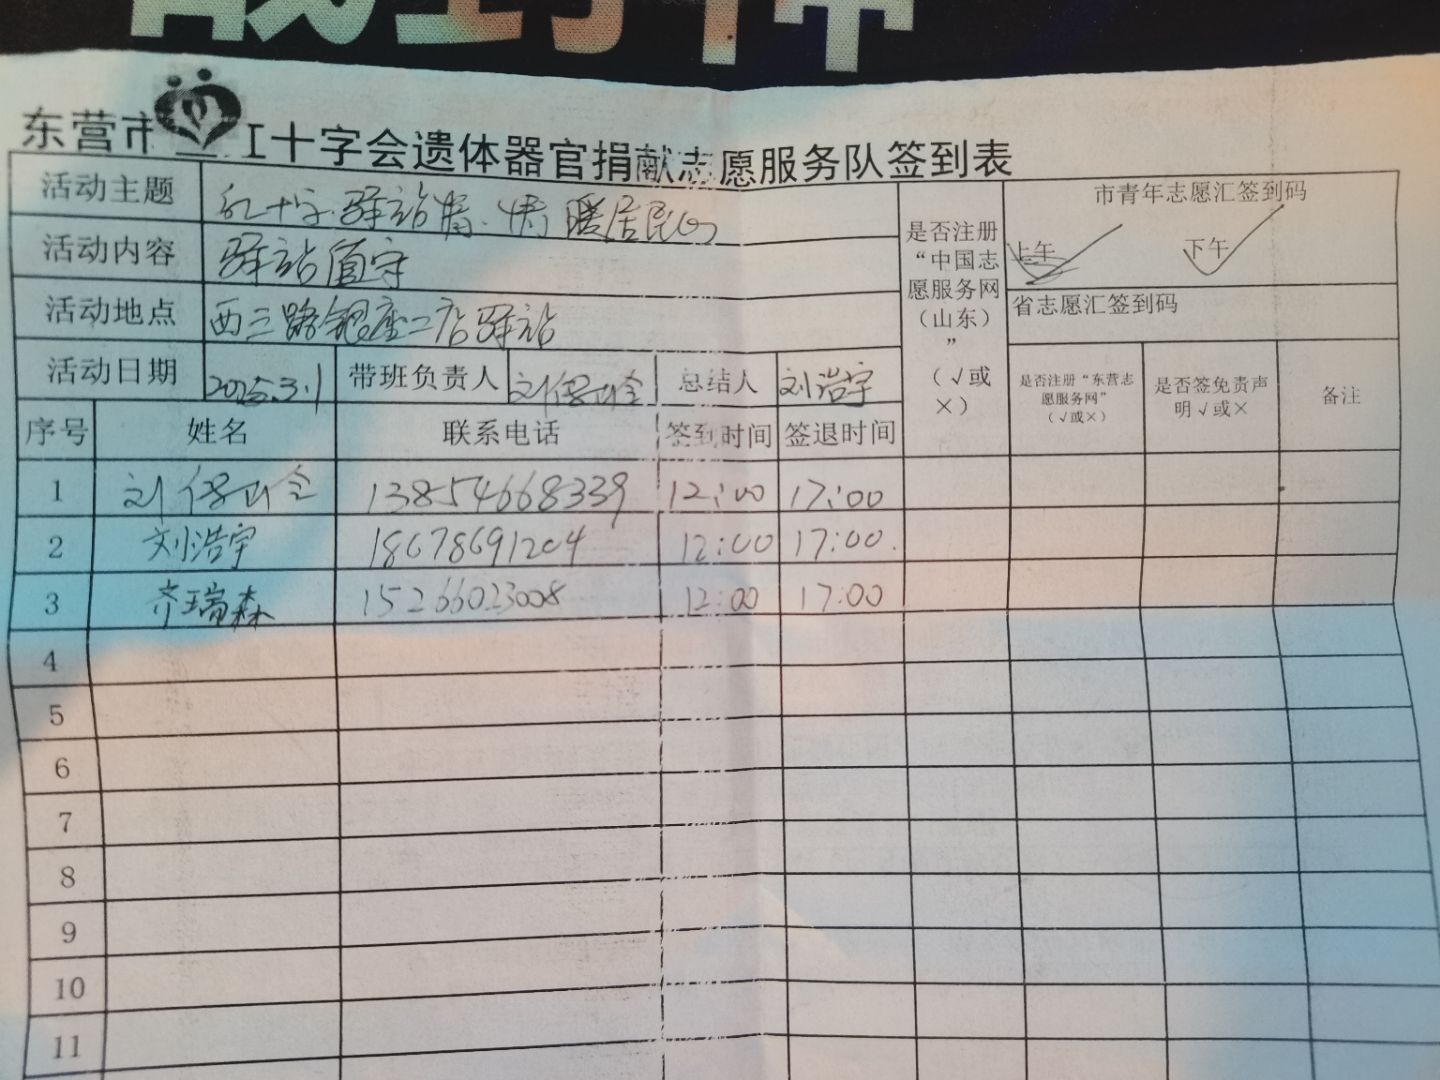 东营市 十字会遗体器官捐献志愿服务队签到表
活动主题 红十字驿站情·情暖居民心
活动内容 驿站值守
活动地点 西三路银座二店驿站
活动日期 2025.3.1 带班负责人 刘 总结人 刘浩宇
是否注册“中国志愿服务网（山东）”（√或×）
市青年志愿汇签到码
上午 下午
省志愿汇签到码
是否注册“东营志愿服务网”（√或×） 是否签免责声明√或× 备注
序号 姓名 联系电话 签到时间 签退时间
1 刘 13854668339 12:00 17:00
2 刘浩宇 18678691204 12:00 17:00
3 齐瑞森 15266023008 12:00 17:00
4
5
6
7
8
9
10
11